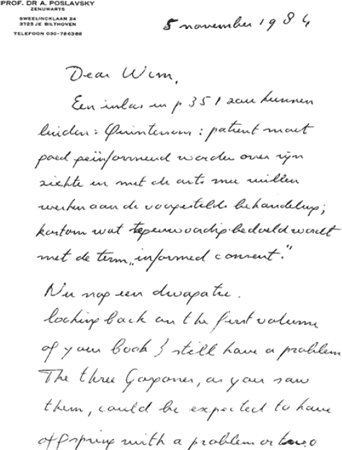 PROF. DR A. POSLAVSKY
ZENUWARTS
SWEELINCKLAAN 24
3723 JE BILTHOVEN
TELEFOON 030-786288
5 november 1984
Dear Wim,
Een inlas in p 351 zou kunnen
luiden: : patient moet
goed geïnformeerd worden over zijn
ziekte en met de arts mee willen
werken aan de voorgestelde behandeling;
kortom wat tegenwoordig bedoeld wordt
met de term „informed consent."
Nu nog een
looking back on the first volume
of your book I still have a problem
The three , as you saw
them, could be expected to have
offspring with a problem or two